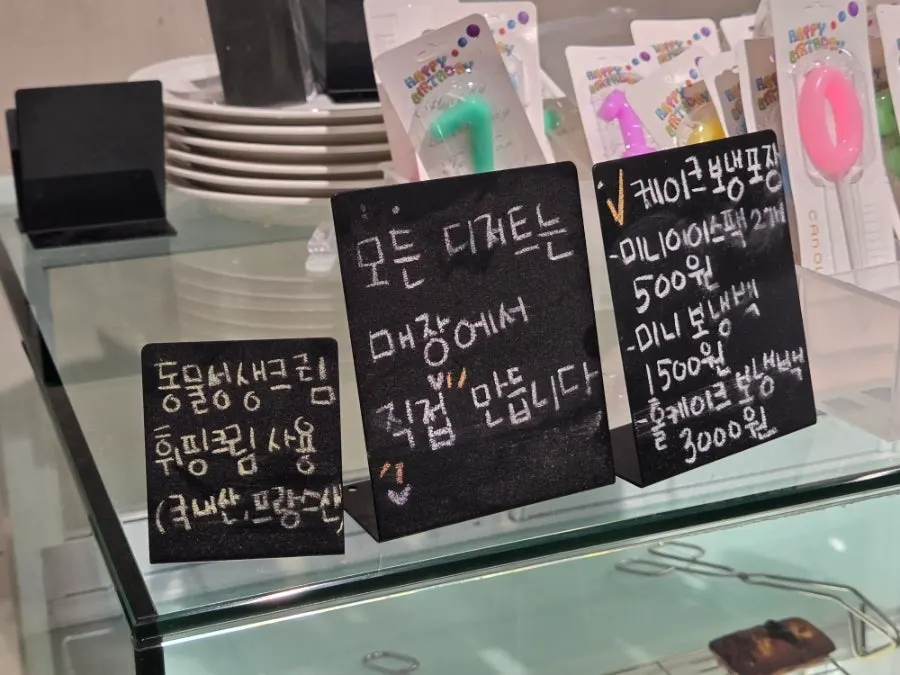 동물성생크림
휘핑크림 사용
(국내산,프랑스산)
모든 디저트는
매장에서
직접 만듭니다
✓케이크보냉포장
-미니아이스팩 2개
500원
-미니 보냉백
1500원
-홀케이크 보냉백
3000원
HAPPY
BIRTHDAY
HAPPY
BIRTHDAY
HAPPY
BIRTHDAY
7
1
0